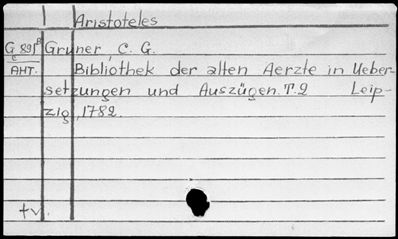 Aristoteles
G 891 Gruner, C. G.
c
AHT. Bibliothek der alten Aerzte in Ueber-
setzungen und Auszügen. T. 2 Leip-
zig, 1782.
tv.